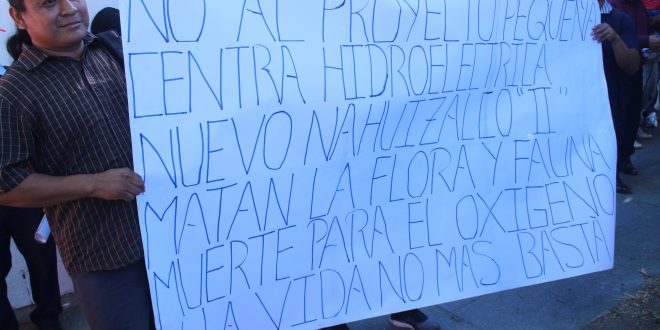 NO AL PROYECTO PEQUEÑA
CENTRA HIDROELECTRICA
NUEVO NAHUIZALCO "II"
MATAN LA FLORA Y FAUNA
MUERTE PARA EL OXIGENO
LA VIDA NO MAS BASTA